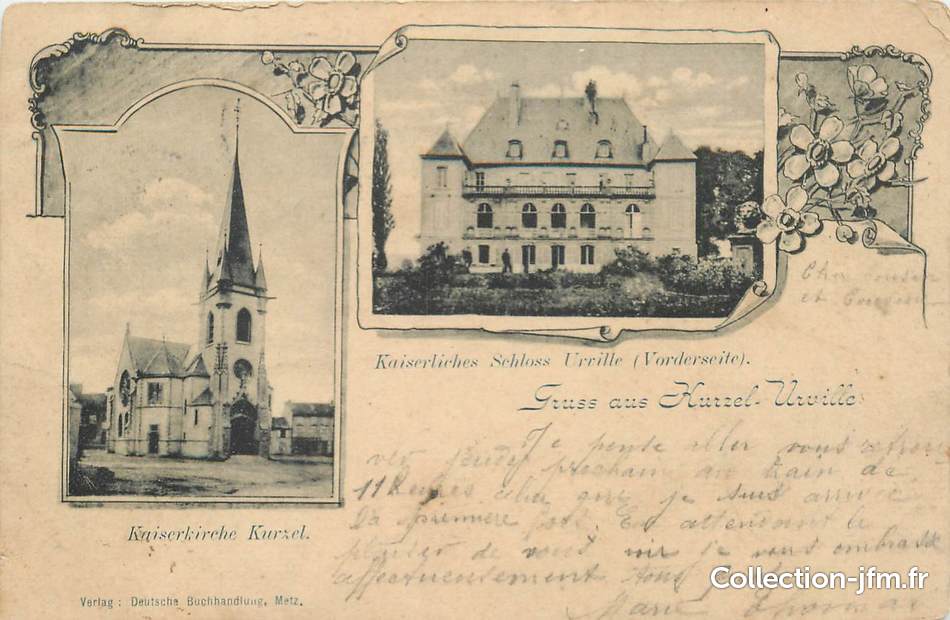 Kaiserliches Schloss Urville (Vorderseite).
Gruss aus Kurzel-Urville
Kaiserkirche Kurzel.
Cher cousin
et Cousine
Je pense aller vous retrou
ver jeudi prochain au train de
11 heures celui que je suis arrivée
la première fois. En attendant le
plaisir de vous voir je vous embrasse
affectueusement tous
Marie Thomas
Verlag: Deutsche Buchhandlung, Metz.
Collection-jfm.fr